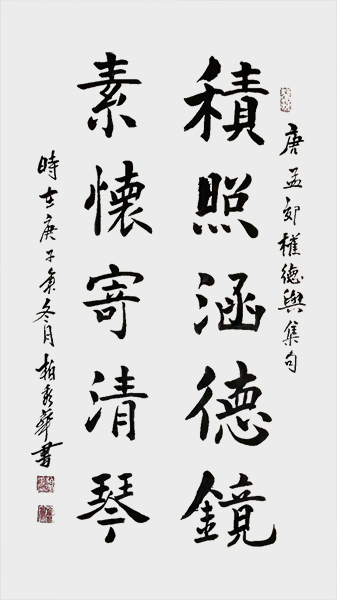 唐孟郊權德輿集句
積照涵德鏡
素懷寄清琴
時在庚子年冬月柏秀華書